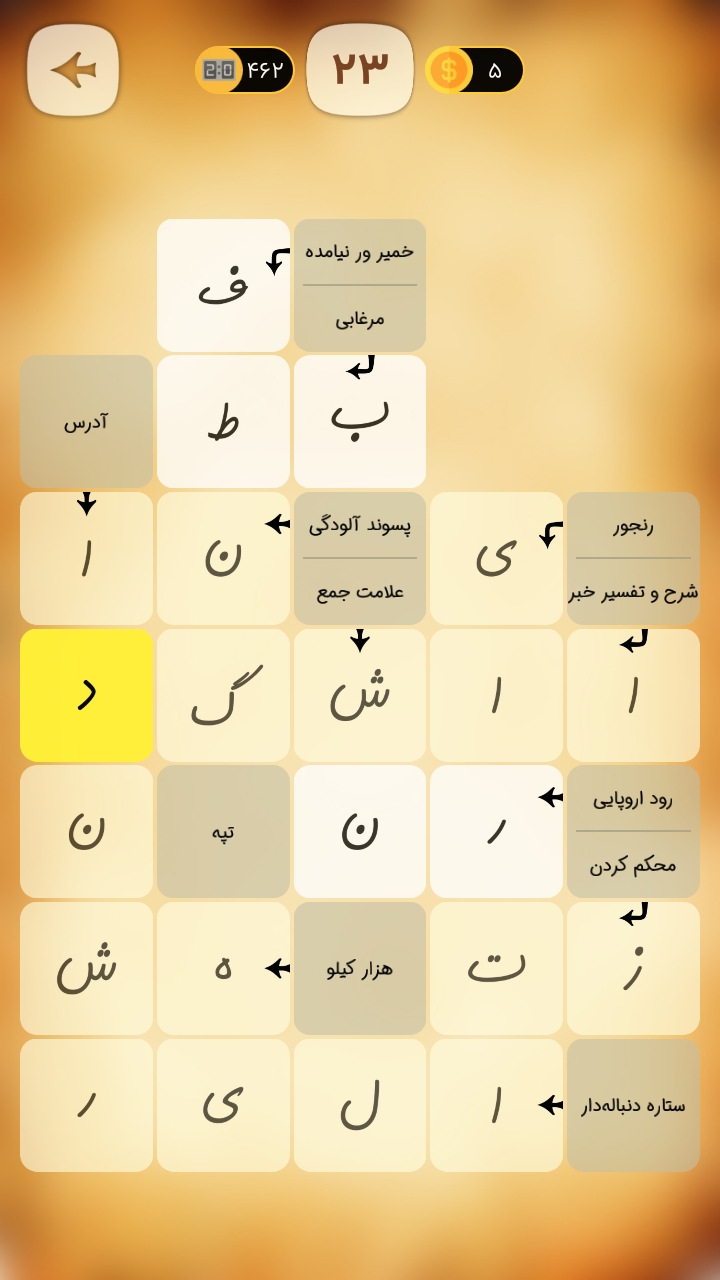 ۴۶۲ ۲۳ ۵
خمیر ور نیامده
مرغابی
ف
ب ط آدرس
رنجور
شرح و تفسیر خبر
ی
پسوند آلودگی
علامت جمع
ن ا
ا ا ش گ د
رود اروپایی
محکم کردن
ر ن تپه ن
ز ت هزار کیلو ه ش
ستاره دنباله‌دار ا ل ی ر